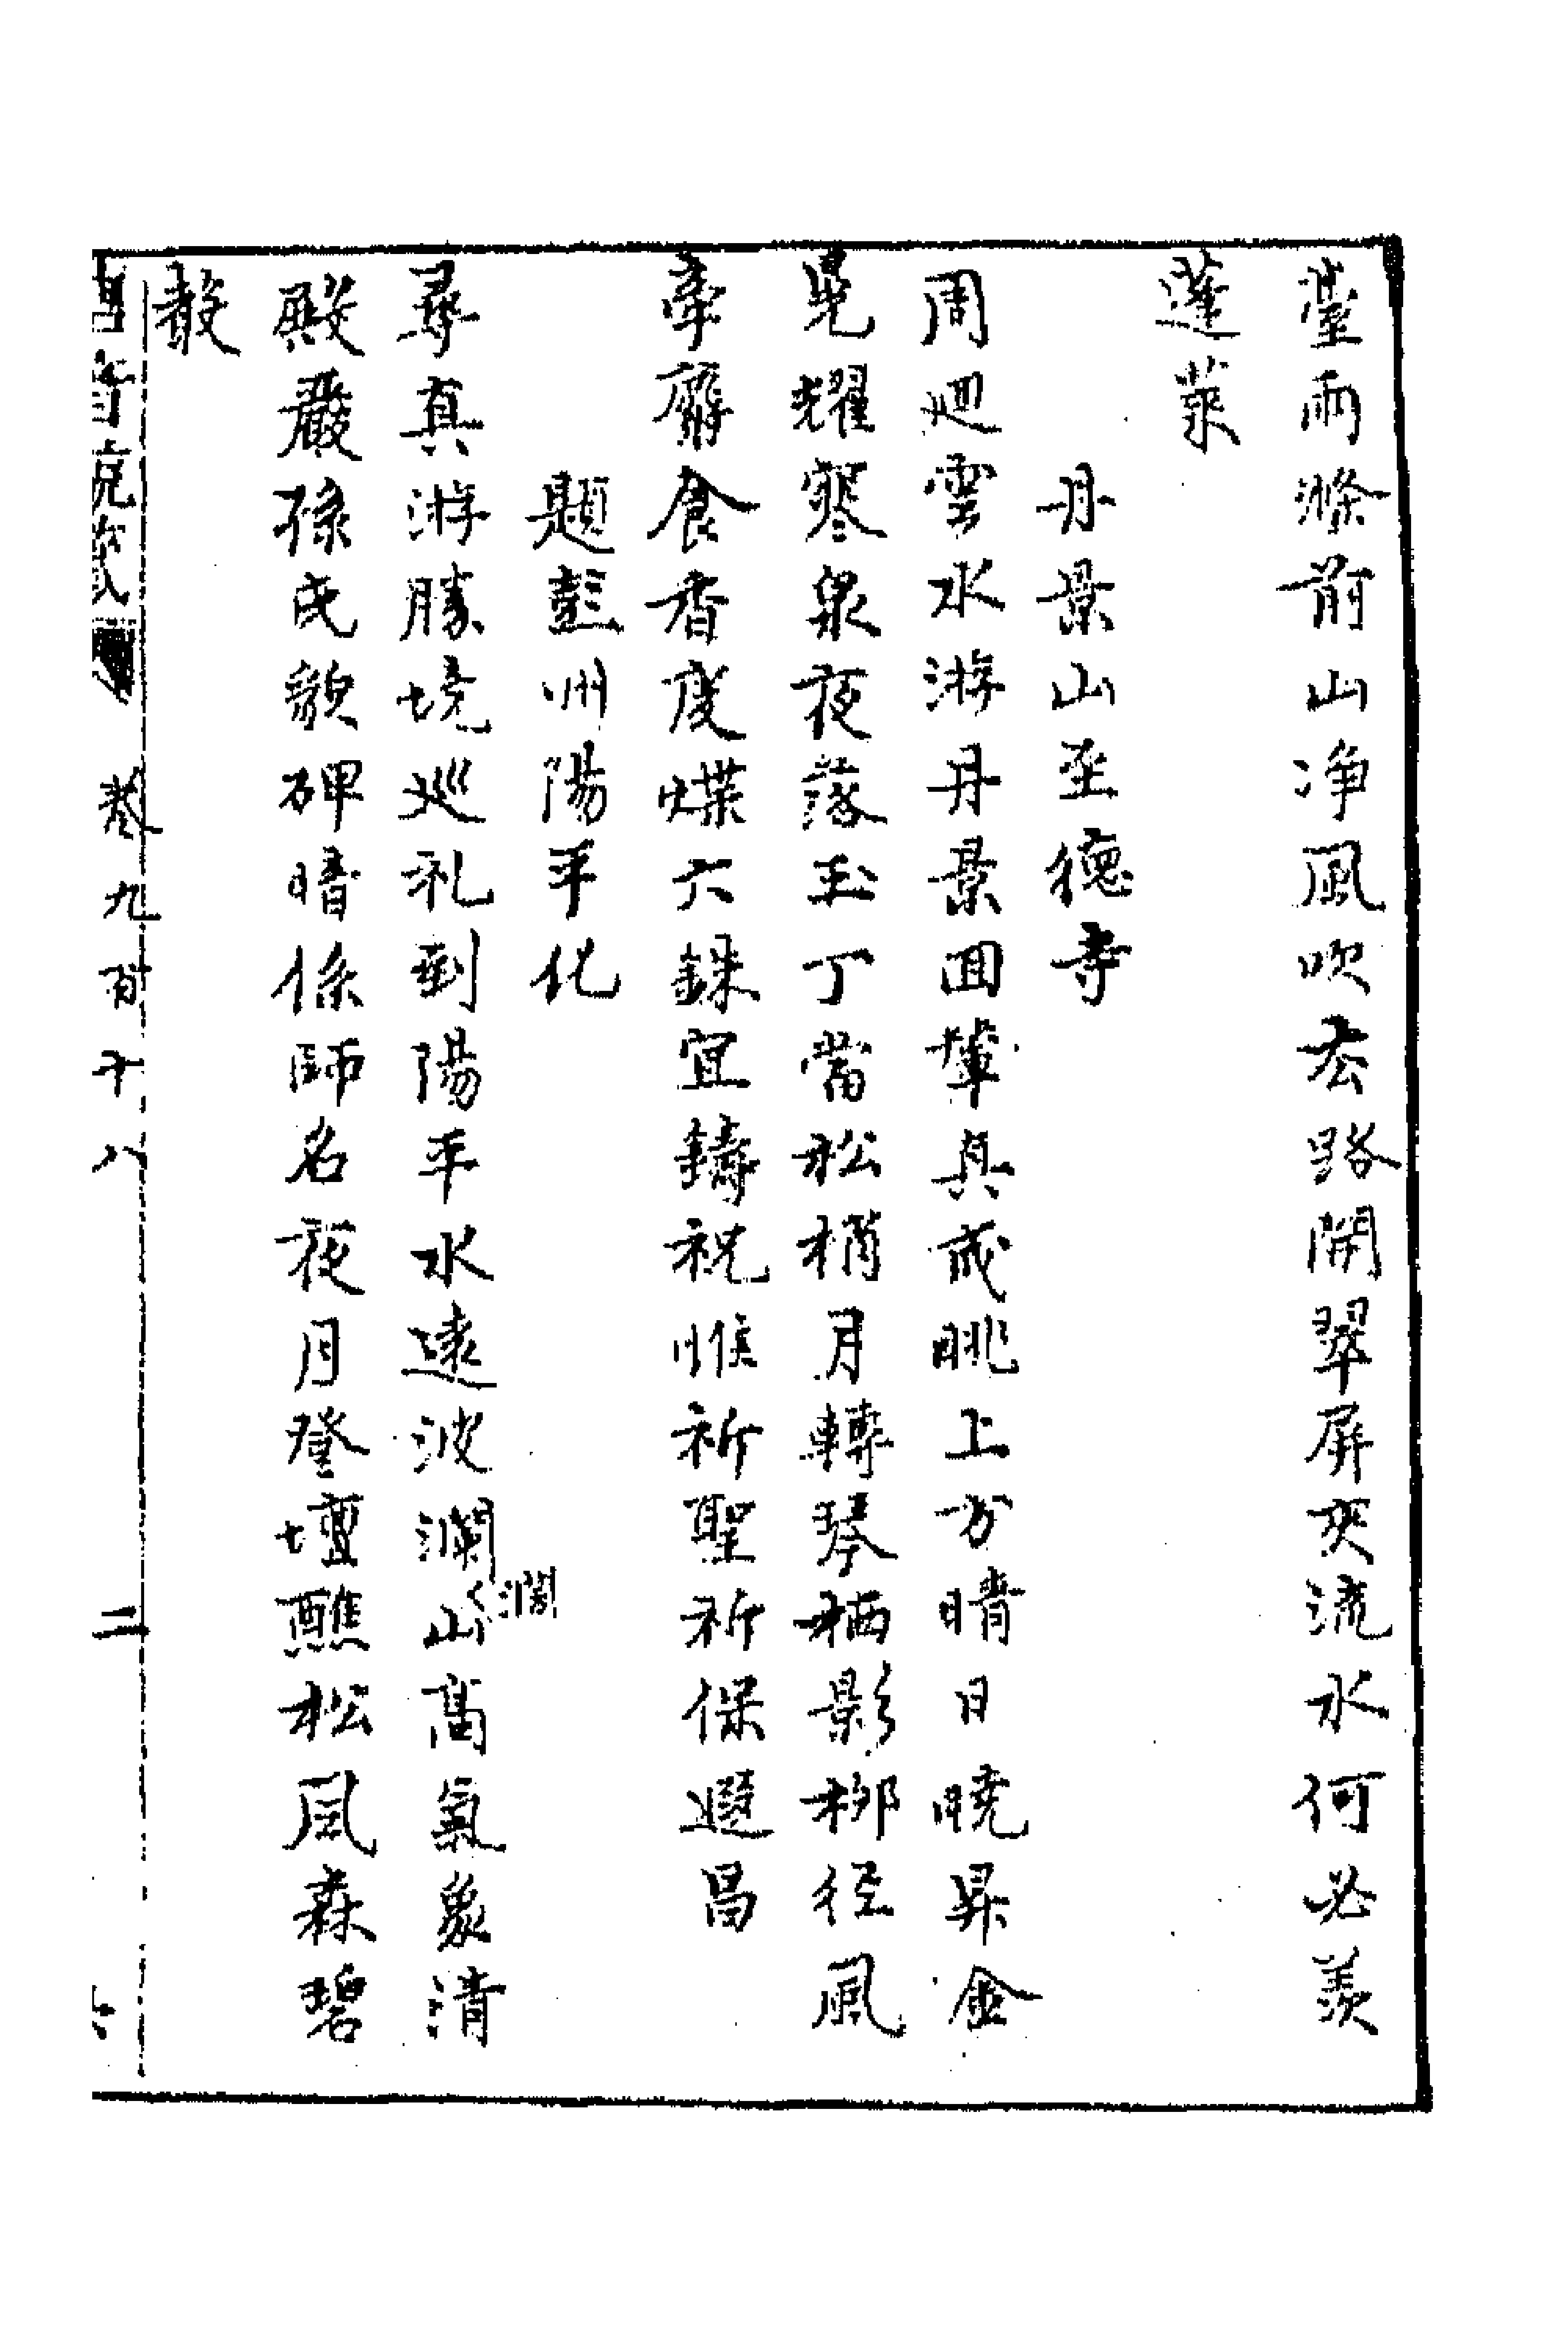 臺雨滌前山净風吹去路開翠屏夾流水何必羨
蓬萊
丹景山至德寺
周迴雲水游丹景因輦真成眺上方晴日曉昇金
晃耀寒泉夜落玉丁當松梢月轉琴栖影柳徑風
牽麝食香度蝶六銖宜鑄祝惟祈聖祈保遐昌
題彭州陽平化
尋真游勝境巡礼到陽平水遠波瀾
瀾
山高氣象清
殿嚴孫氏貌碑暗係師名夜月登壇醮松風森碧
殽
卷九百十八
二